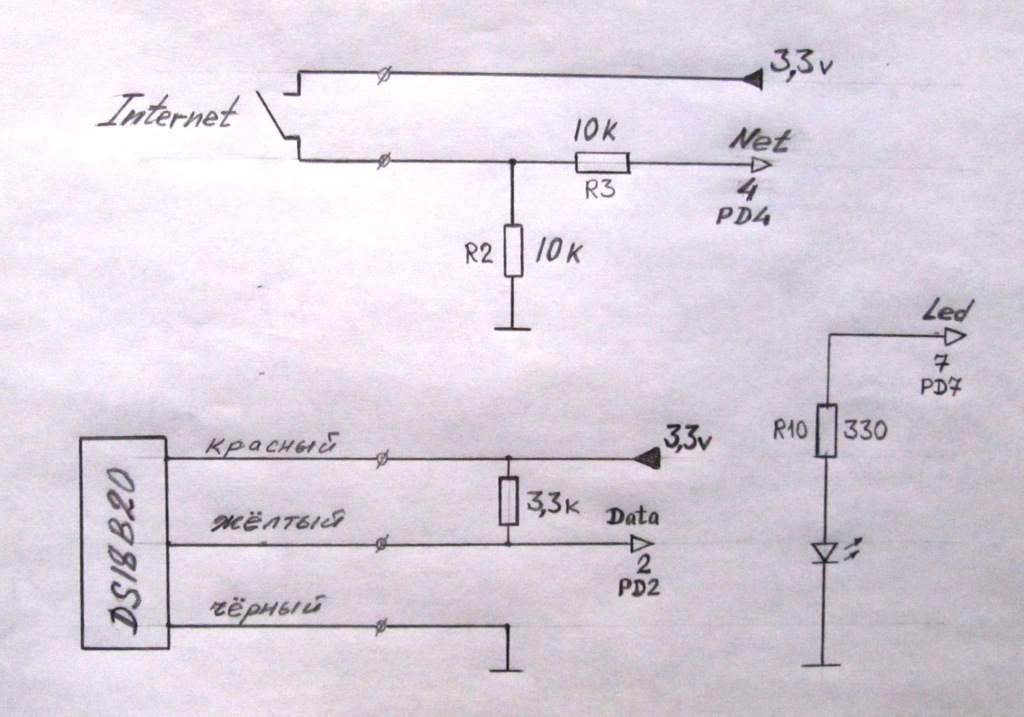 3,3v
Internet
10K
Net
R3
4
PD4
R2
10K
Led
7
PD7
R10
330
DS18B20
красный
3,3v
3,3к
жёлтый
Data
2
PD2
чёрный